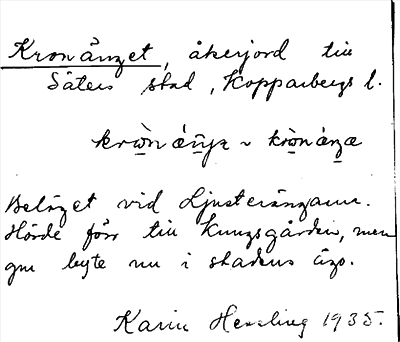 Kronänget, åkerjord till
Säters stad, Kopparbergs l.
Beläget vid Ljusterängarna.
Hörde förr till Kungsgården, men
gm byte nu i stadens ägo.
Karin Hessling 1935.